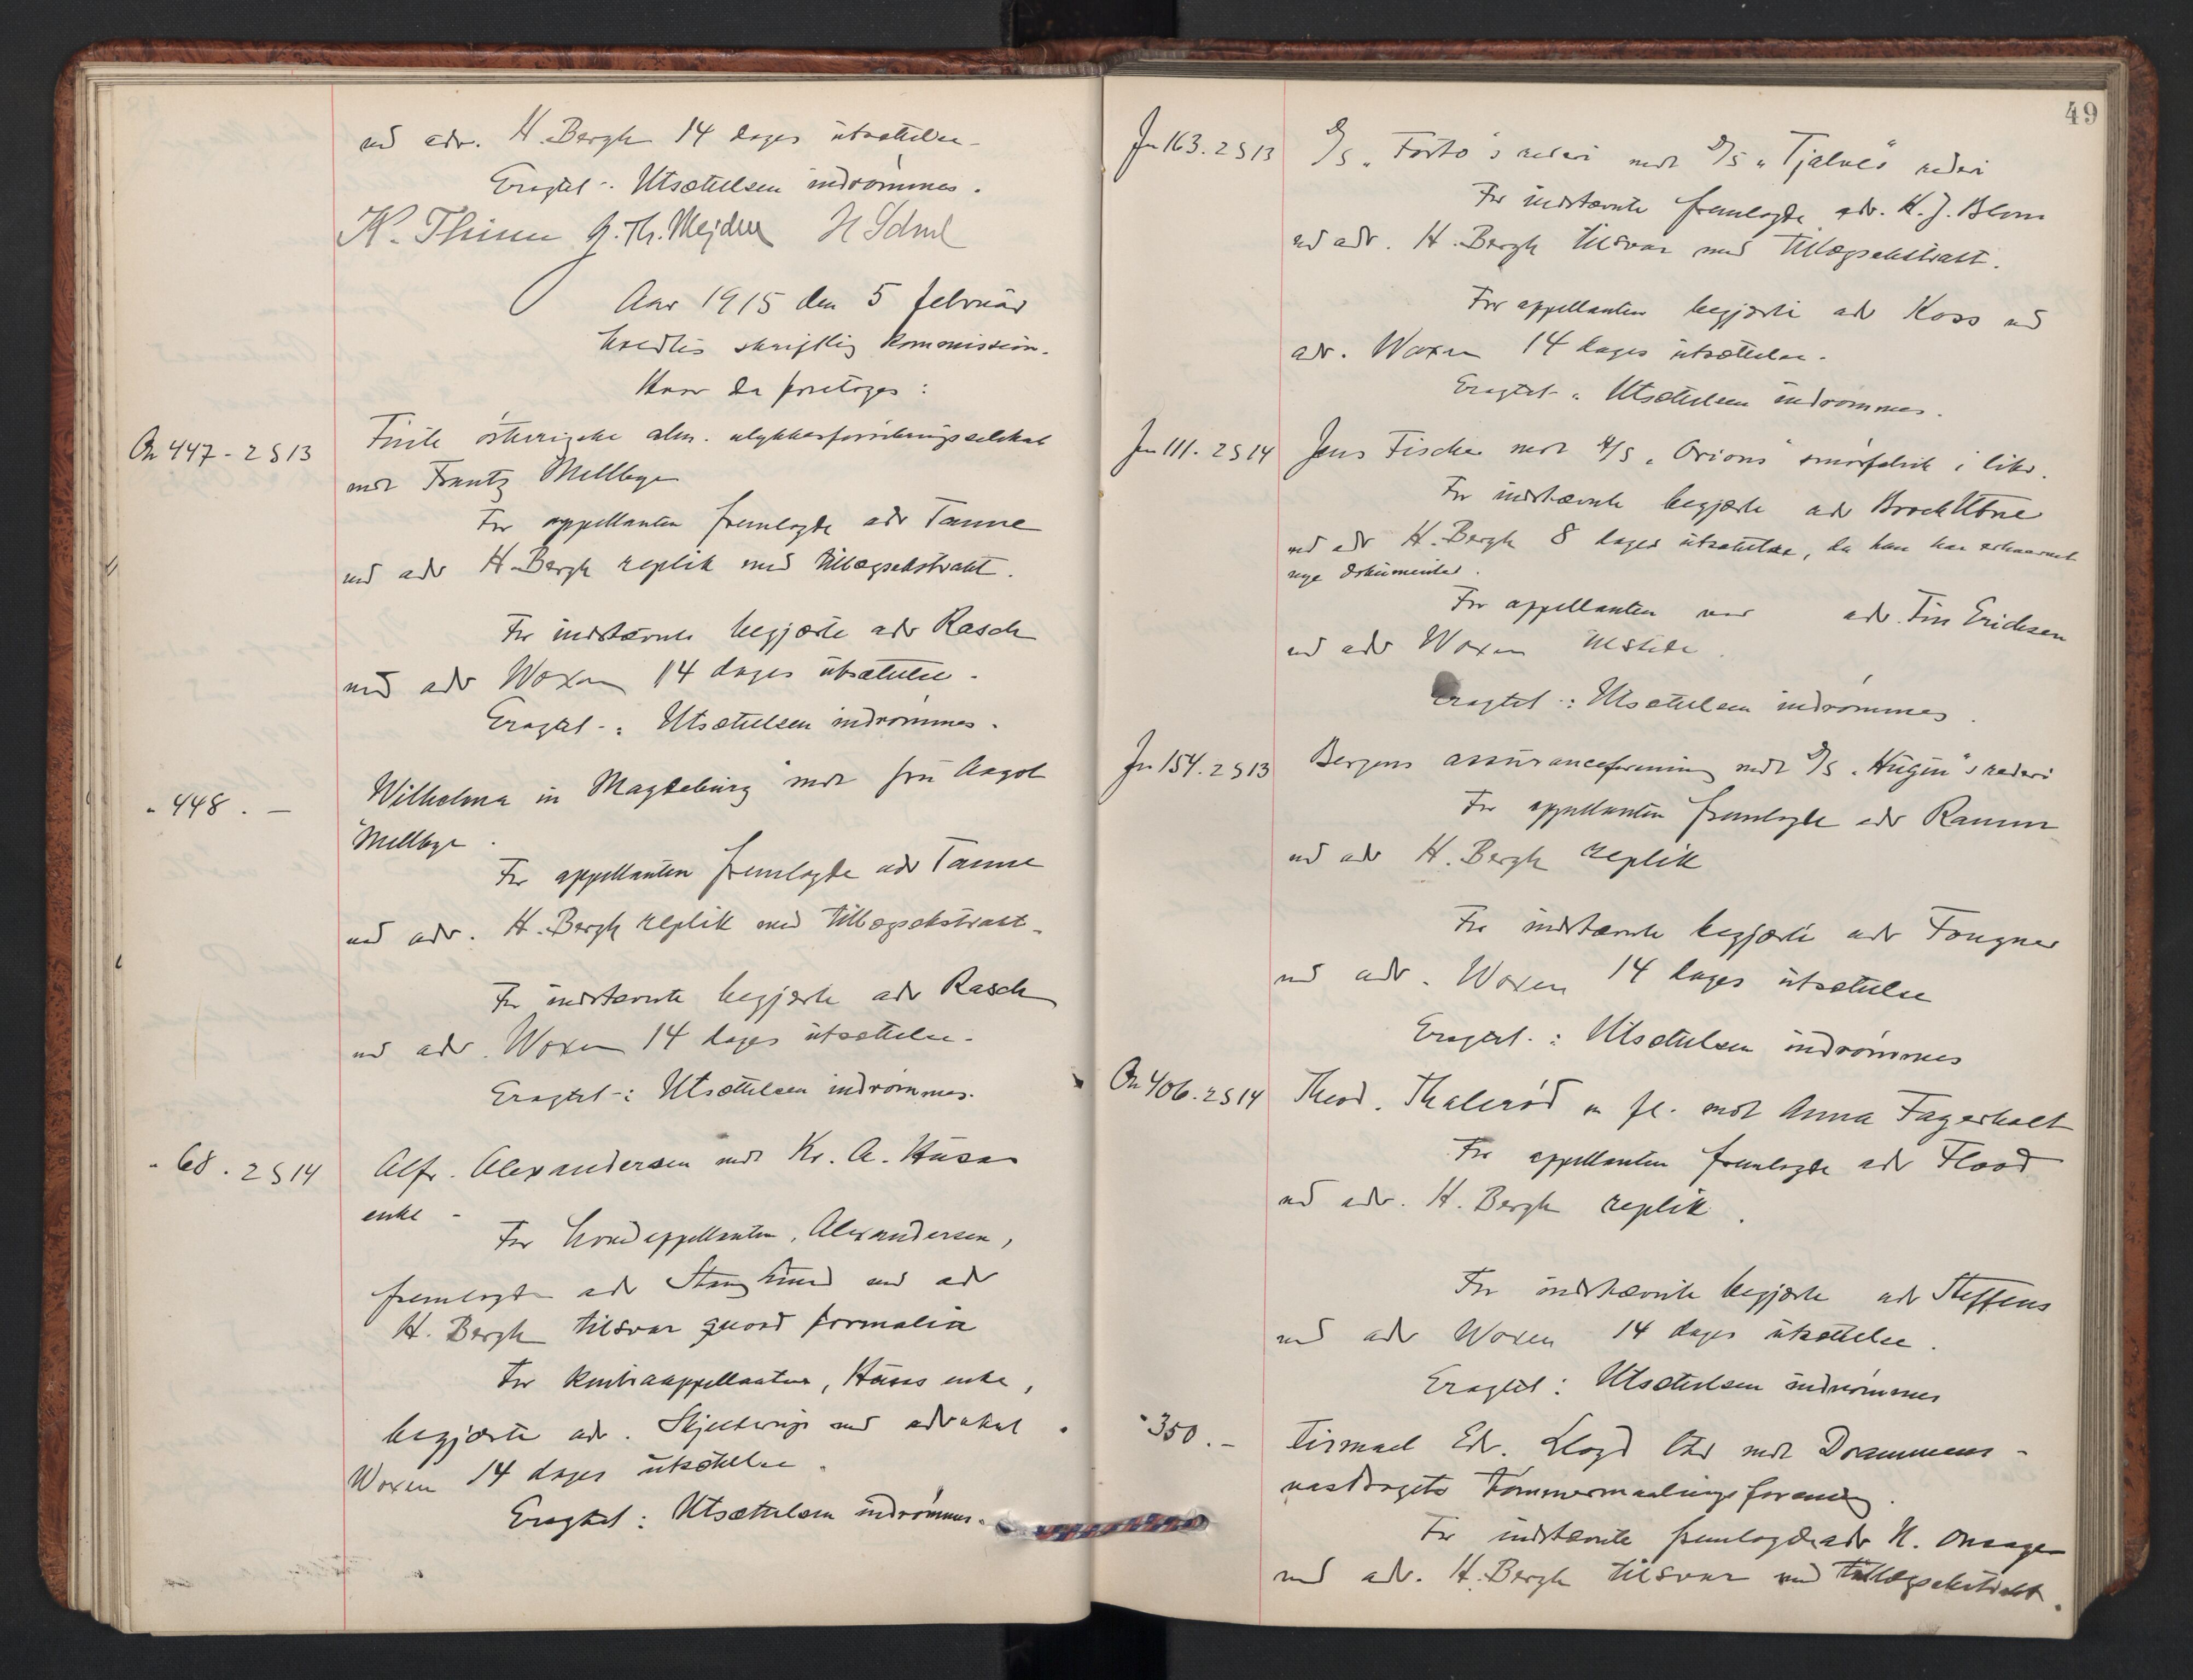 ved adv. H. Bergh 14 dages utsættelse.
Eragtet: Utsættelsen indrømmes.
K. Thinn H. Scheel
Aar 1915 den 5 februar
holdtes skriftlig kommission.
Hvor da foretoges:
On 447 - 2 S 13
Første österrigske alm. ulykkesforsikringsselskab
mot Frantz Mellbye
For appellanten fremlagde adv Tanne
ved adv H. Bergh replik med tillægsekstrakt.
For indstævnte begjærte adv Rasch
ved adv Woxen 14 dages utsættelse.
Eragtet: Utsættelsen indrømmes.
" 448. —
Wilhelma in Magdeburg mot fru Aagot
Mellbye.
For appellanten fremlagde adv Tanne
ved adv. H. Bergh replik med tillægsekstrakt.
For indstævnte begjærte adv Rasch
ved adv. Woxen 14 dages utsættelse.
Eragtet: Utsættelsen indrømmes.
" 68. 2 S 14
Alfr. Alexandersen mot Kr. A. Huses
enke.
For hovedappellanten, Alexandersen,
fremlagde adv Stang Lund ved adv
H. Bergh tilsvar quoad formalia
For kontraappellanten, Huses enke,
begjærte adv. Skjelderup ved advokat
Woxen 14 dages utsættelse.
Eragtet: Utsættelsen indrømmes.
49
Jn 163. 2 S 13
D/S "Forto"s rederi mot D/S "Tjalves" rederi
For indstævnte fremlagde adv. K. J. Blom
ved adv. H. Bergh tilsvar med tillægsekstrakt.
For appellanten begjærte adv Koss ved
adv. Woxen 14 dages utsættelse.
Eragtet: Utsættelsen indrømmes.
Jn 111. 2 S 14
Jens Fischer mot A/S "Orions" smørfabrik i likv.
For indstævnte begjærte adv Brock Utne
ved adv H. Bergh 8 dages utsættelse, da han har erhvervet
nye dokumenter.
For appellanten var adv. Finn Erichsen
ved adv Woxen tilstede.
Eragtet: Utsættelsen indrømmes.
Jn 154. 2 S 13
Bergens assuranceforening mot D/S "Hugin"s rederi
For appellanten fremlagde adv Ramm
ved adv H. Bergh replik
For indstævnte begjærte adv Fougner
ved adv. Woxen 14 dages utsættelse
Eragtet: Utsættelsen indrømmes
On 406. 2 S 14
Theod. Thalerød m fl. mot Anna Fagerholt
For appellanten fremlagde adv Flood
ved adv. H. Bergh replik.
For indstævnte begjærte adv Steffens
ved adv Woxen 14 dages utsættelse.
Eragtet: Utsættelsen indrømmes
" 350. —
Firmaet Edv. Lloyd Ltd mot Drammens-
vasdragets Tømmermaalingsforening.
For indstævnte fremlagde adv N. Onsager
ved adv. H. Bergh tilsvar med tillægsekstrakt.